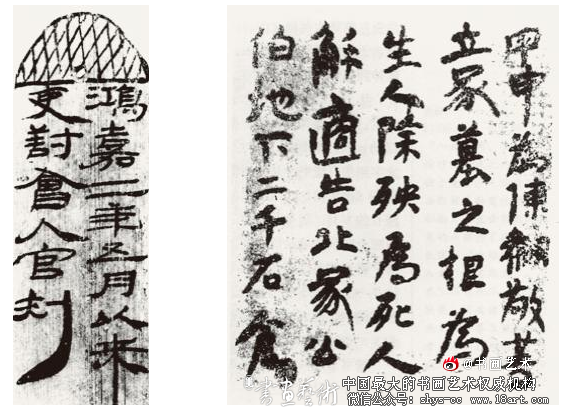 鴻嘉二年五月以来
吏對會入官刺
甲申為陳叔敬等
立冢墓之根為
生人除殃為死人
解適告北冢公
伯地下二千石倉
@书画艺术
書畫藝術
中国最大的书画艺术权威机构
微信公众号：shys-cc www.18art.com